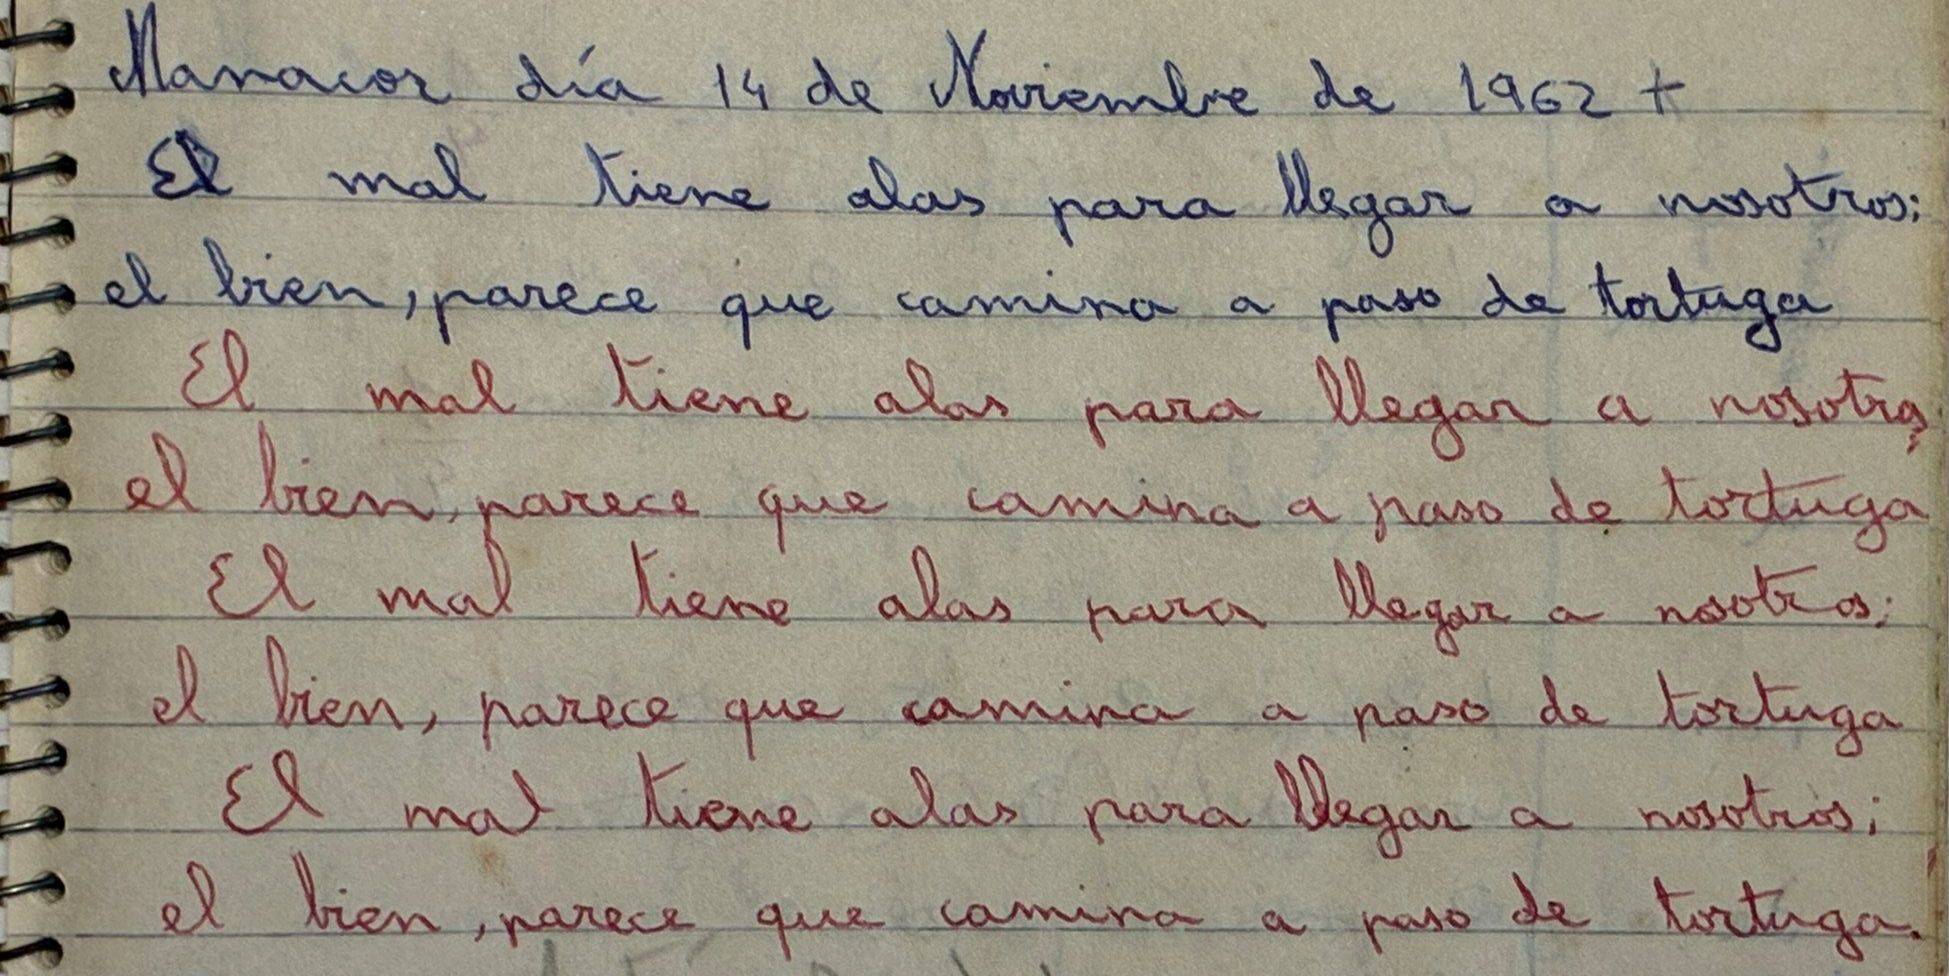 Manacor día 14 de Noviembre de 1962 +
El mal tiene alas para llegar a nosotros;
el bien, parece que camina a paso de tortuga
El mal tiene alas para llegar a nosotros;
el bien, parece que camina a paso de tortuga
El mal tiene alas para llegar a nosotros;
el bien, parece que camina a paso de tortuga
El mal tiene alas para llegar a nosotros;
el bien, parece que camina a paso de tortuga.